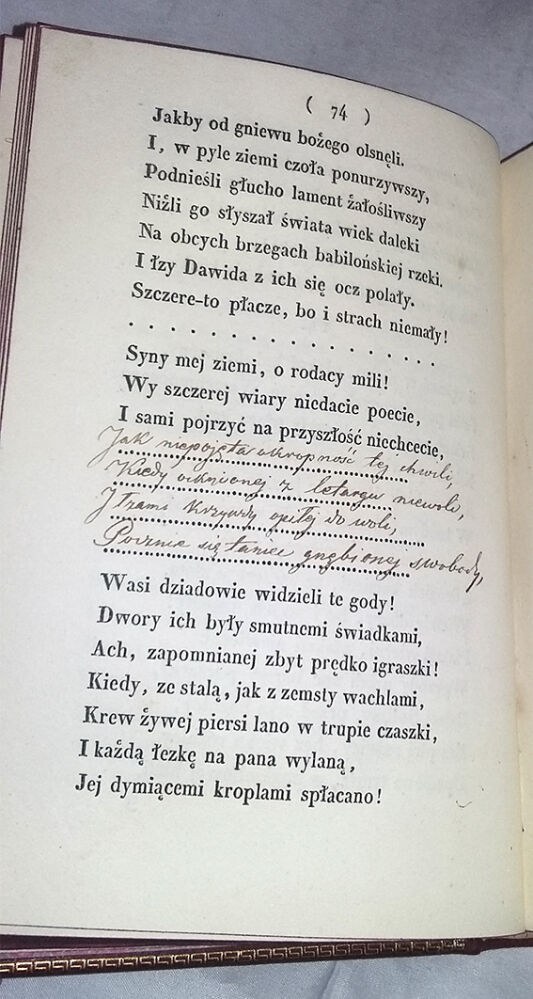 ( 74 )
Jakby od gniewu bożego olsnęli.
I, w pyle ziemi czoła ponurzywszy,
Podnieśli głucho lament żałośliwszy
Niźli go słyszał świata wiek daleki
Na obcych brzegach babilońskiej rzeki.
I łzy Dawida z ich się ocz polały.
Szczere-to płacze, bo i strach niemały!
. . . . . . . . . . . . . . . . . .
Syny mej ziemi, o rodacy mili!
Wy szczerej wiary niedacie poecie,
I sami pojrzyć na przyszłość niechcecie,
Jak niepojęta okropność tej chwili,
Kiedy ocknionej z letargu niewoli,
I łzami krzywdy opiłej do woli,
Pocznie się taniec gnębionej swobody,
Wasi dziadowie widzieli te gody!
Dwory ich były smutnemi świadkami,
Ach, zapomnianej zbyt prędko igraszki!
Kiedy, ze stalą, jak z zemsty wachlami,
Krew żywej piersi lano w trupie czaszki,
I każdą łezkę na pana wylaną,
Jej dymiącemi kroplami spłacano!